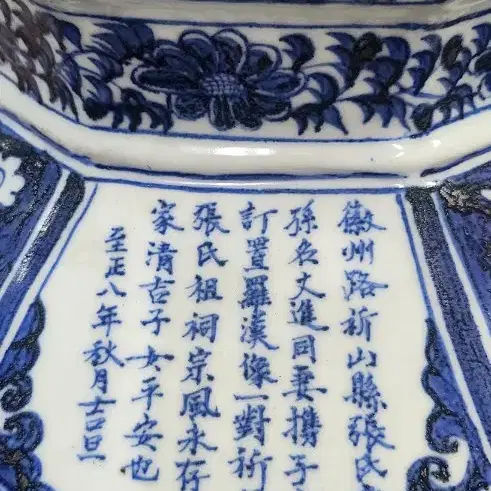 徽州路祈山縣張氏
孫名文進同妻攜子
訂置羅漢像一對祈
張氏祖祠宗風永存
家清吉子女平安也
至正八年秋月吉旦